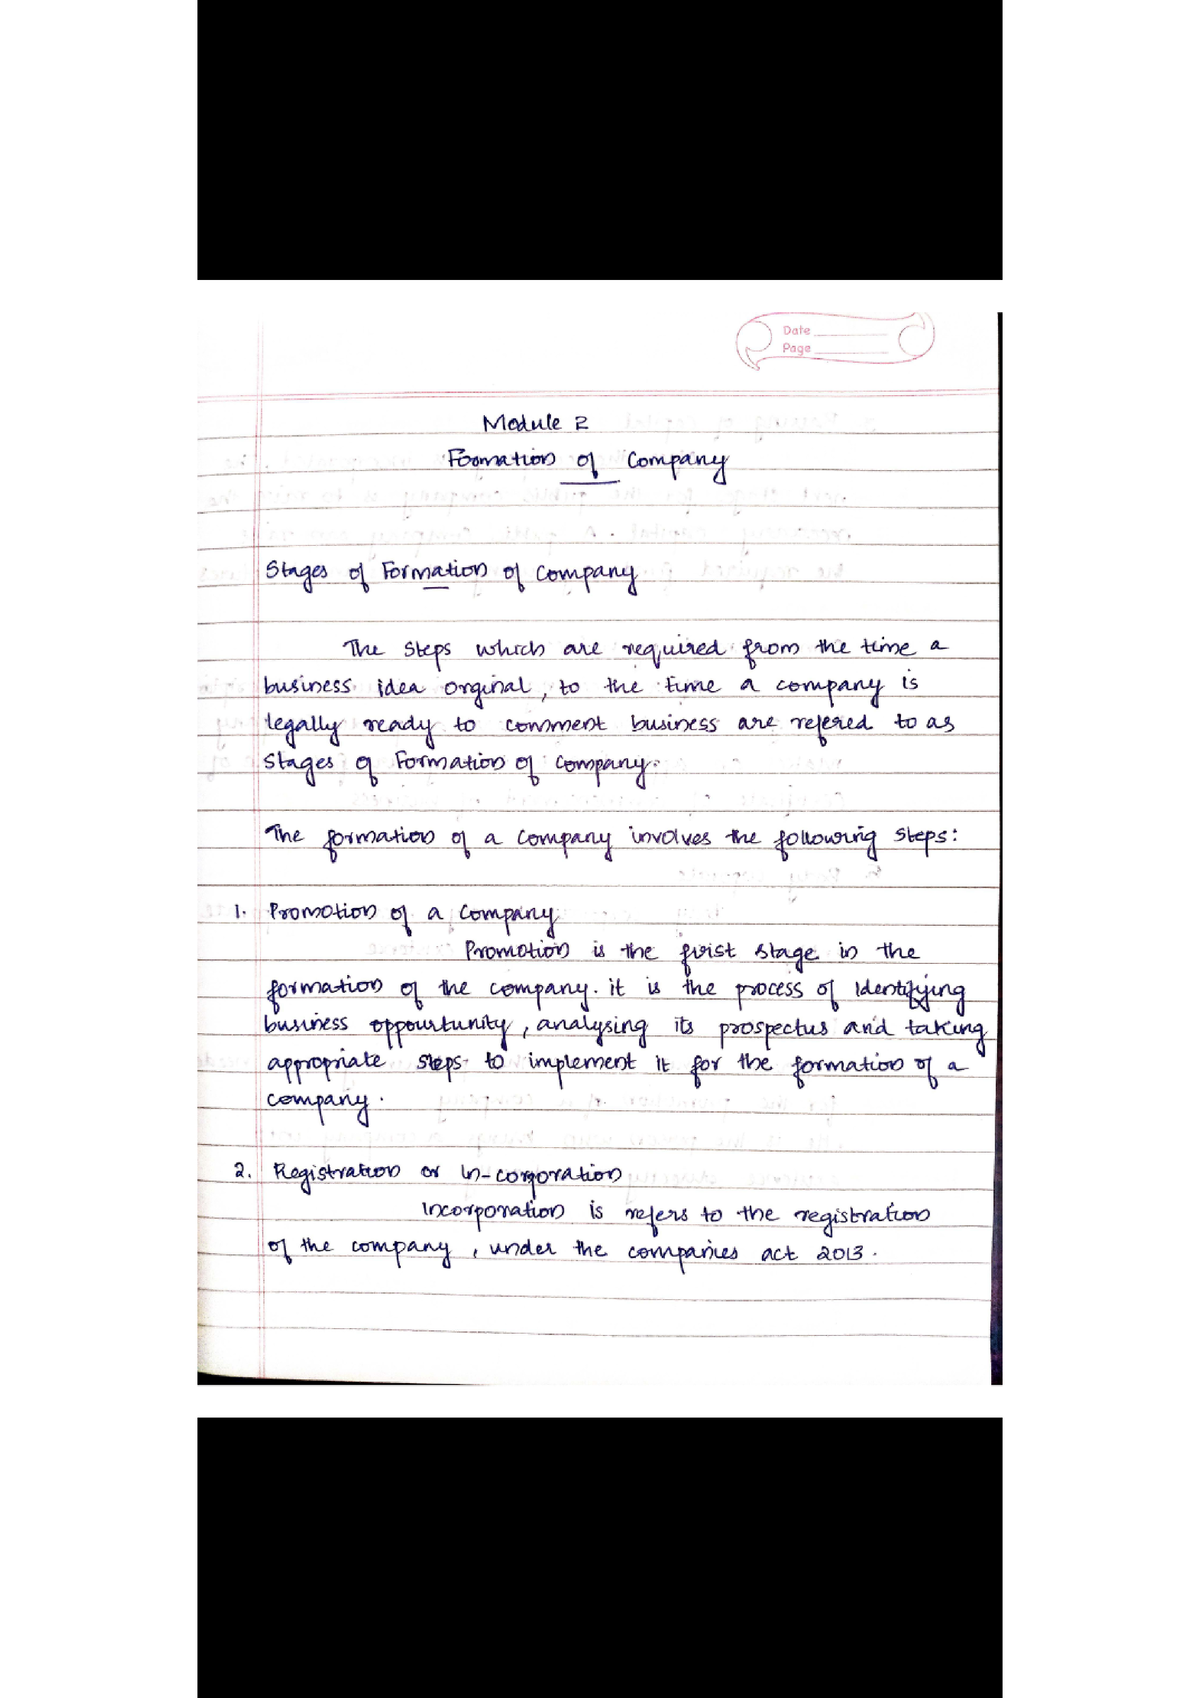 Date
Page
Module 2
Formation of Company
Stages of Formation of Company
The Steps which are required from the time a
business idea orginal, to the time a company is
legally ready to comment business are refered to as
Stages of Formation of company.
The formation of a company involves the following steps:
1. Promotion of a company
Promotion is the first stage in the
formation of the company. it is the process of Identifying
business oppourtunity, analysing its prospectus and taking
appropriate steps to implement it for the formation of a
company.
2. Registration or In-corporation
Incorporation is refers to the registration
of the company, under the companies act 2013.